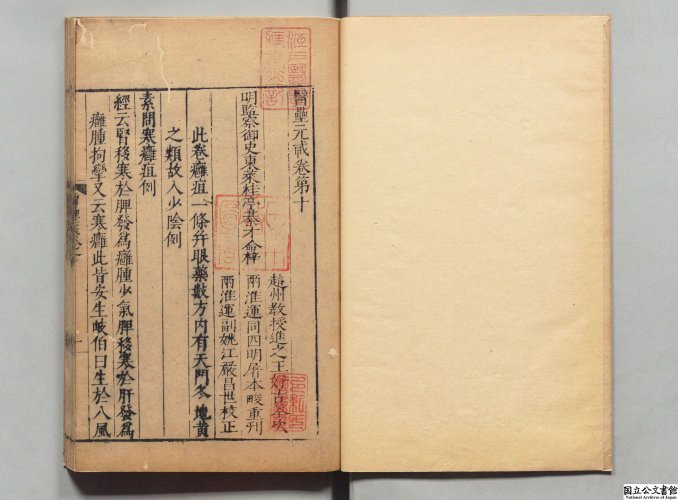 醫壘元戎卷第十
趙州教授進士王好古
明監察御史東萊桂亭命梓
兩淮運同四明屠本畯重刊
兩淮運副姚江嚴昌世校正
此卷癰疽一條并眼藥數方內有天門冬地黃
之類故入少陰例
素問寒癰疽例
經云腎移寒於脾發為癰腫少氣脾移寒於肝發為
癰腫拘攣又云寒癰此皆安生岐伯曰生於八風
国立公文書館
National Archives of Japan